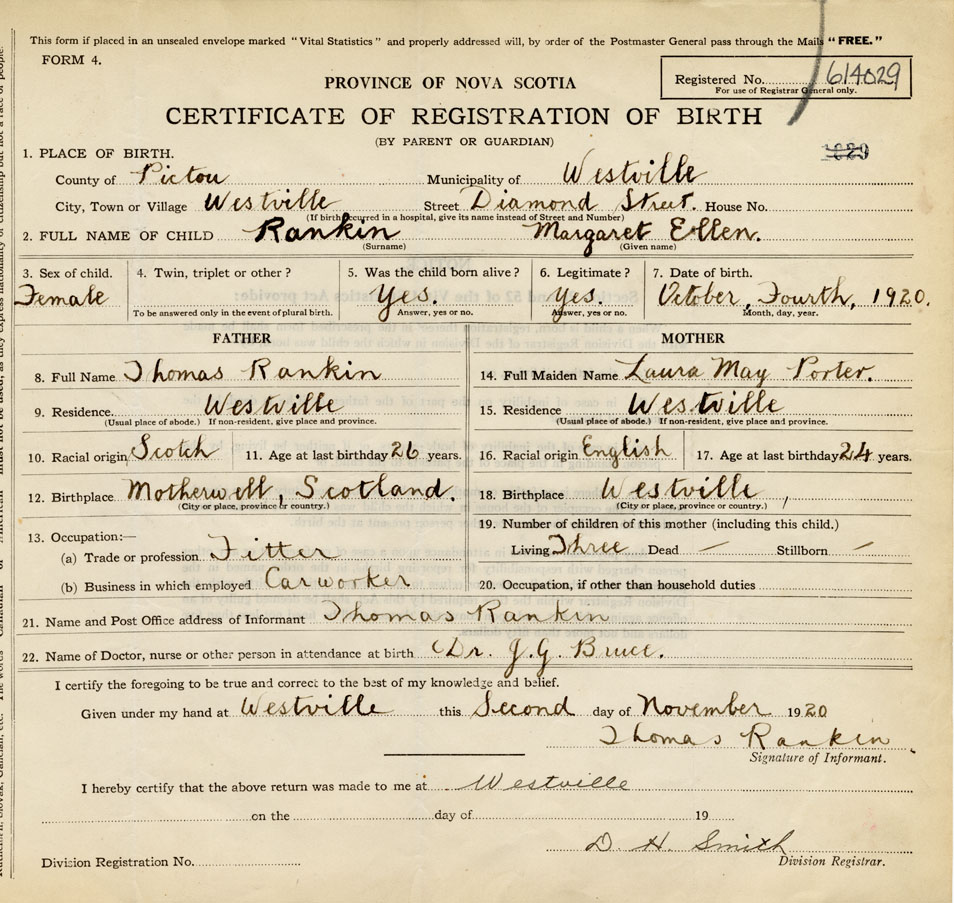 This form if placed in an unsealed envelope marked "Vital Statistics" and properly addressed will, by order of the Postmaster General pass through the Mails "FREE."
FORM 4.
Registered No. 614029
For use of Registrar General only.
PROVINCE OF NOVA SCOTIA
CERTIFICATE OF REGISTRATION OF BIRTH
(BY PARENT OR GUARDIAN)
1. PLACE OF BIRTH.
County of Pictou Municipality of Westville
City, Town or Village Westville Street Diamond Street. House No.
(If birth occurred in a hospital, give its name instead of Street and Number)
2. FULL NAME OF CHILD Rankin Margaret Ellen.
(Surname) (Given name)
3. Sex of child. 4. Twin, triplet or other? 5. Was the child born alive? 6. Legitimate? 7. Date of birth.
Female Yes. Yes. October, Fourth, 1920.
To be answered only in the event of plural birth. Answer, yes or no. Answer, yes or no. Month, day, year.
FATHER MOTHER
8. Full Name Thomas Rankin 14. Full Maiden Name Laura May Porter.
9. Residence. Westville 15. Residence Westville
(Usual place of abode.) If non-resident, give place and province. (Usual place of abode.) If non-resident, give place and province.
10. Racial origin Scotch 11. Age at last birthday 26 years. 16. Racial origin English 17. Age at last birthday 24 years.
12. Birthplace Motherwell, Scotland. 18. Birthplace Westville
(City or place, province or country.) (City or place, province or country.)
13. Occupation:— 19. Number of children of this mother (including this child.)
(a) Trade or profession Fitter Living Three Dead — Stillborn —
(b) Business in which employed Carworker 20. Occupation, if other than household duties
21. Name and Post Office address of Informant Thomas Rankin
22. Name of Doctor, nurse or other person in attendance at birth Dr. J.G. Bruce.
I certify the foregoing to be true and correct to the best of my knowledge and belief.
Given under my hand at Westville this Second day of November 1920
Thomas Rankin
Signature of Informant.
I hereby certify that the above return was made to me at Westville
on the day of 19
D. H. Smith
Division Registration No. Division Registrar.